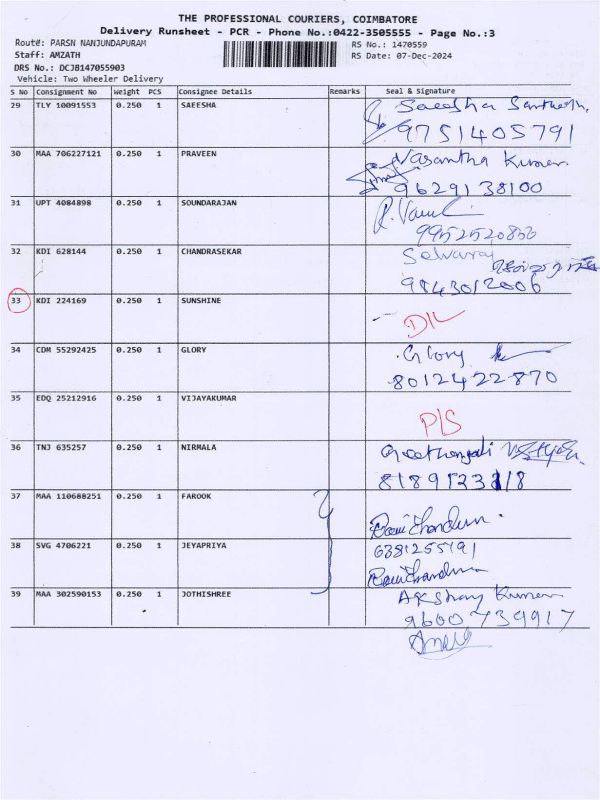 THE PROFESSIONAL COURIERS, COIMBATORE
Delivery Runsheet - PCR - Phone No.:0422-3505555 - Page No.:3
Route#: PARSN NANJUNDAPURAM
RS No.: 1470559
Staff: AMZATH
RS Date: 07-Dec-2024
DRS No.: DCJB147055903
Vehicle: Two Wheeler Delivery
S No Consignment No Weight PCS Consignee Details Remarks Seal & Signature
29 TLY 10091553 0.250 1 SAEESHA Saeesha Santhosh.
9751405791
30 MAA 706227121 0.250 1 PRAVEEN Vasantha Kumar
9629138100
31 UPT 4084898 0.250 1 SOUNDARAJAN
9952520836
32 KDI 628144 0.250 1 CHANDRASEKAR Selvaraj
9843012006
33 KDI 224169 0.250 1 SUNSHINE
D/L
34 CDM 55292425 0.250 1 GLORY Glory
8012422870
35 EDQ 25212916 0.250 1 VIJAYAKUMAR
P/S
36 TNJ 635257 0.250 1 NIRMALA Geethanjali
37 MAA 110688251 0.250 1 FAROOK
Ramchandran
38 SVG 4706221 0.250 1 JEYAPRIYA 6381255191
Ramchandran
39 MAA 302590153 0.250 1 JOTHISHREE Akshay Kumar
9600739917